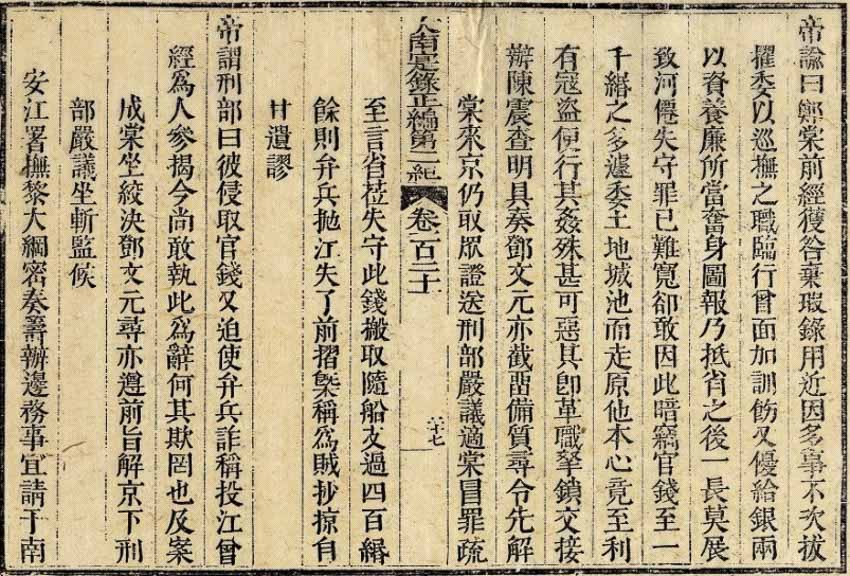 帝諭曰鄭棠前經獲咎棄瑕錄用近因多事不次拔
擢委以巡撫之職臨行曾面加訓飭又優給銀兩
以資養廉所當奮身圖報乃抵省之後一長莫展
致河僊失守罪已難寬卻敢因此暗竊官錢至一
千緡之多遽委土地城池而走原他本心竟至利
有寇盜便行其姦殊甚可惡其卽革職拏鎖交接
辦陳震查明具奏鄧文元亦截畱備質尋令先解
棠來京仍取眾證送刑部嚴議適棠冒罪疏
大南寔錄正編第二紀 卷二百二十 二十七
至言省莅失守此錢搬取隨船支過四百緡
餘則弁兵拋江失了前摺槩稱爲賊抄掠自
甘遺謬
帝謂刑部曰彼侵取官錢又迫使弁兵詐稱投江曾
經爲人參揭今尚敢執此爲辭何其欺罔也及案
成棠坐絞決鄧文元尋亦遵前旨解京下刑
部嚴議坐斬監候
安江署撫黎大綱密奏籌辦邊務事宜請于南